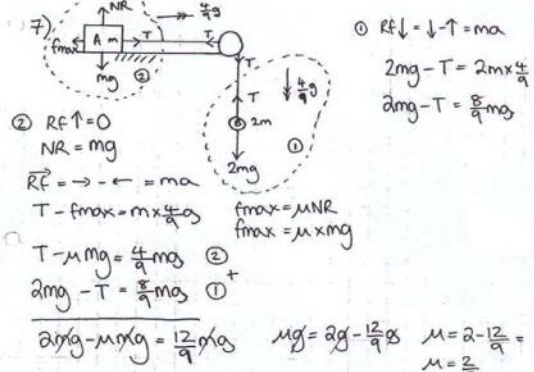 7)
NR
4/9 g
fmax
A m
T
T
mg
②
T
T
4/9 g
B 2m
2mg
①
① Rf↓ = ↓-↑ = ma
2mg - T = 2m x 4/9
2mg - T = 8/9 mg
② Rf↑ = 0
NR = mg
Rf = → - ← = ma
T - fmax = m x 4/9 g
fmax = μNR
fmax = μ x mg
T - μmg = 4/9 mg ②
2mg - T = 8/9 mg ① +
2mg - μmg = 12/9 mg
μg = 2g - 12/9 g
μ = 2 - 12/9 =
μ = 2/